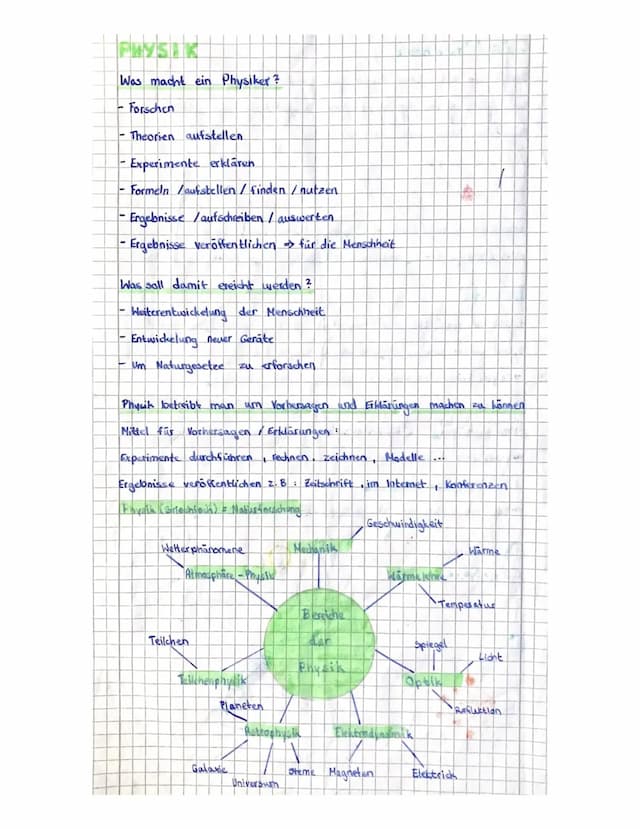 PHYSIK
Was macht ein Physiker?
- Forschen
- Theorien aufstellen
- Experimente erklären
- Formeln /aufstellen / finden / nutzen
- Ergebnisse /aufschreiben / auswerten
- Ergebnisse veröffentlichen → für die Menschheit
Was soll damit ereicht werden?
- Weiterentwickelung der Menschheit
- Entwickelung neuer Geräte
- Um Naturgesetze zu erforschen
Physik betreibt man um Vorhersagen und Erklärungen machen zu können
Mittel für Vorhersagen / Erklärungen:
Experimente durchführen, rechnen, zeichnen, Modelle ...
Ergebnisse veröffentlichen z.B: Zeitschrift, im Internet, Konferenzen
Physik (Griechisch) = Naturforschung
Geschwindigkeit
Wetterphänomene Mechanik Wärme
Atmosphäre-Physik Wärmelehre
Temperatur
Bereiche
der
Physik
Teilchen Spiegel
Licht
Teilchenphysik Optik
Planeten Reflektion
Astrophysik Elektrodynamik
Galaxie Sterne Magneten Elektrick
Universum